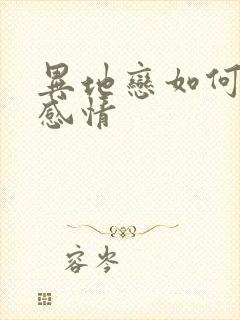 異地戀如何
感情
容岑